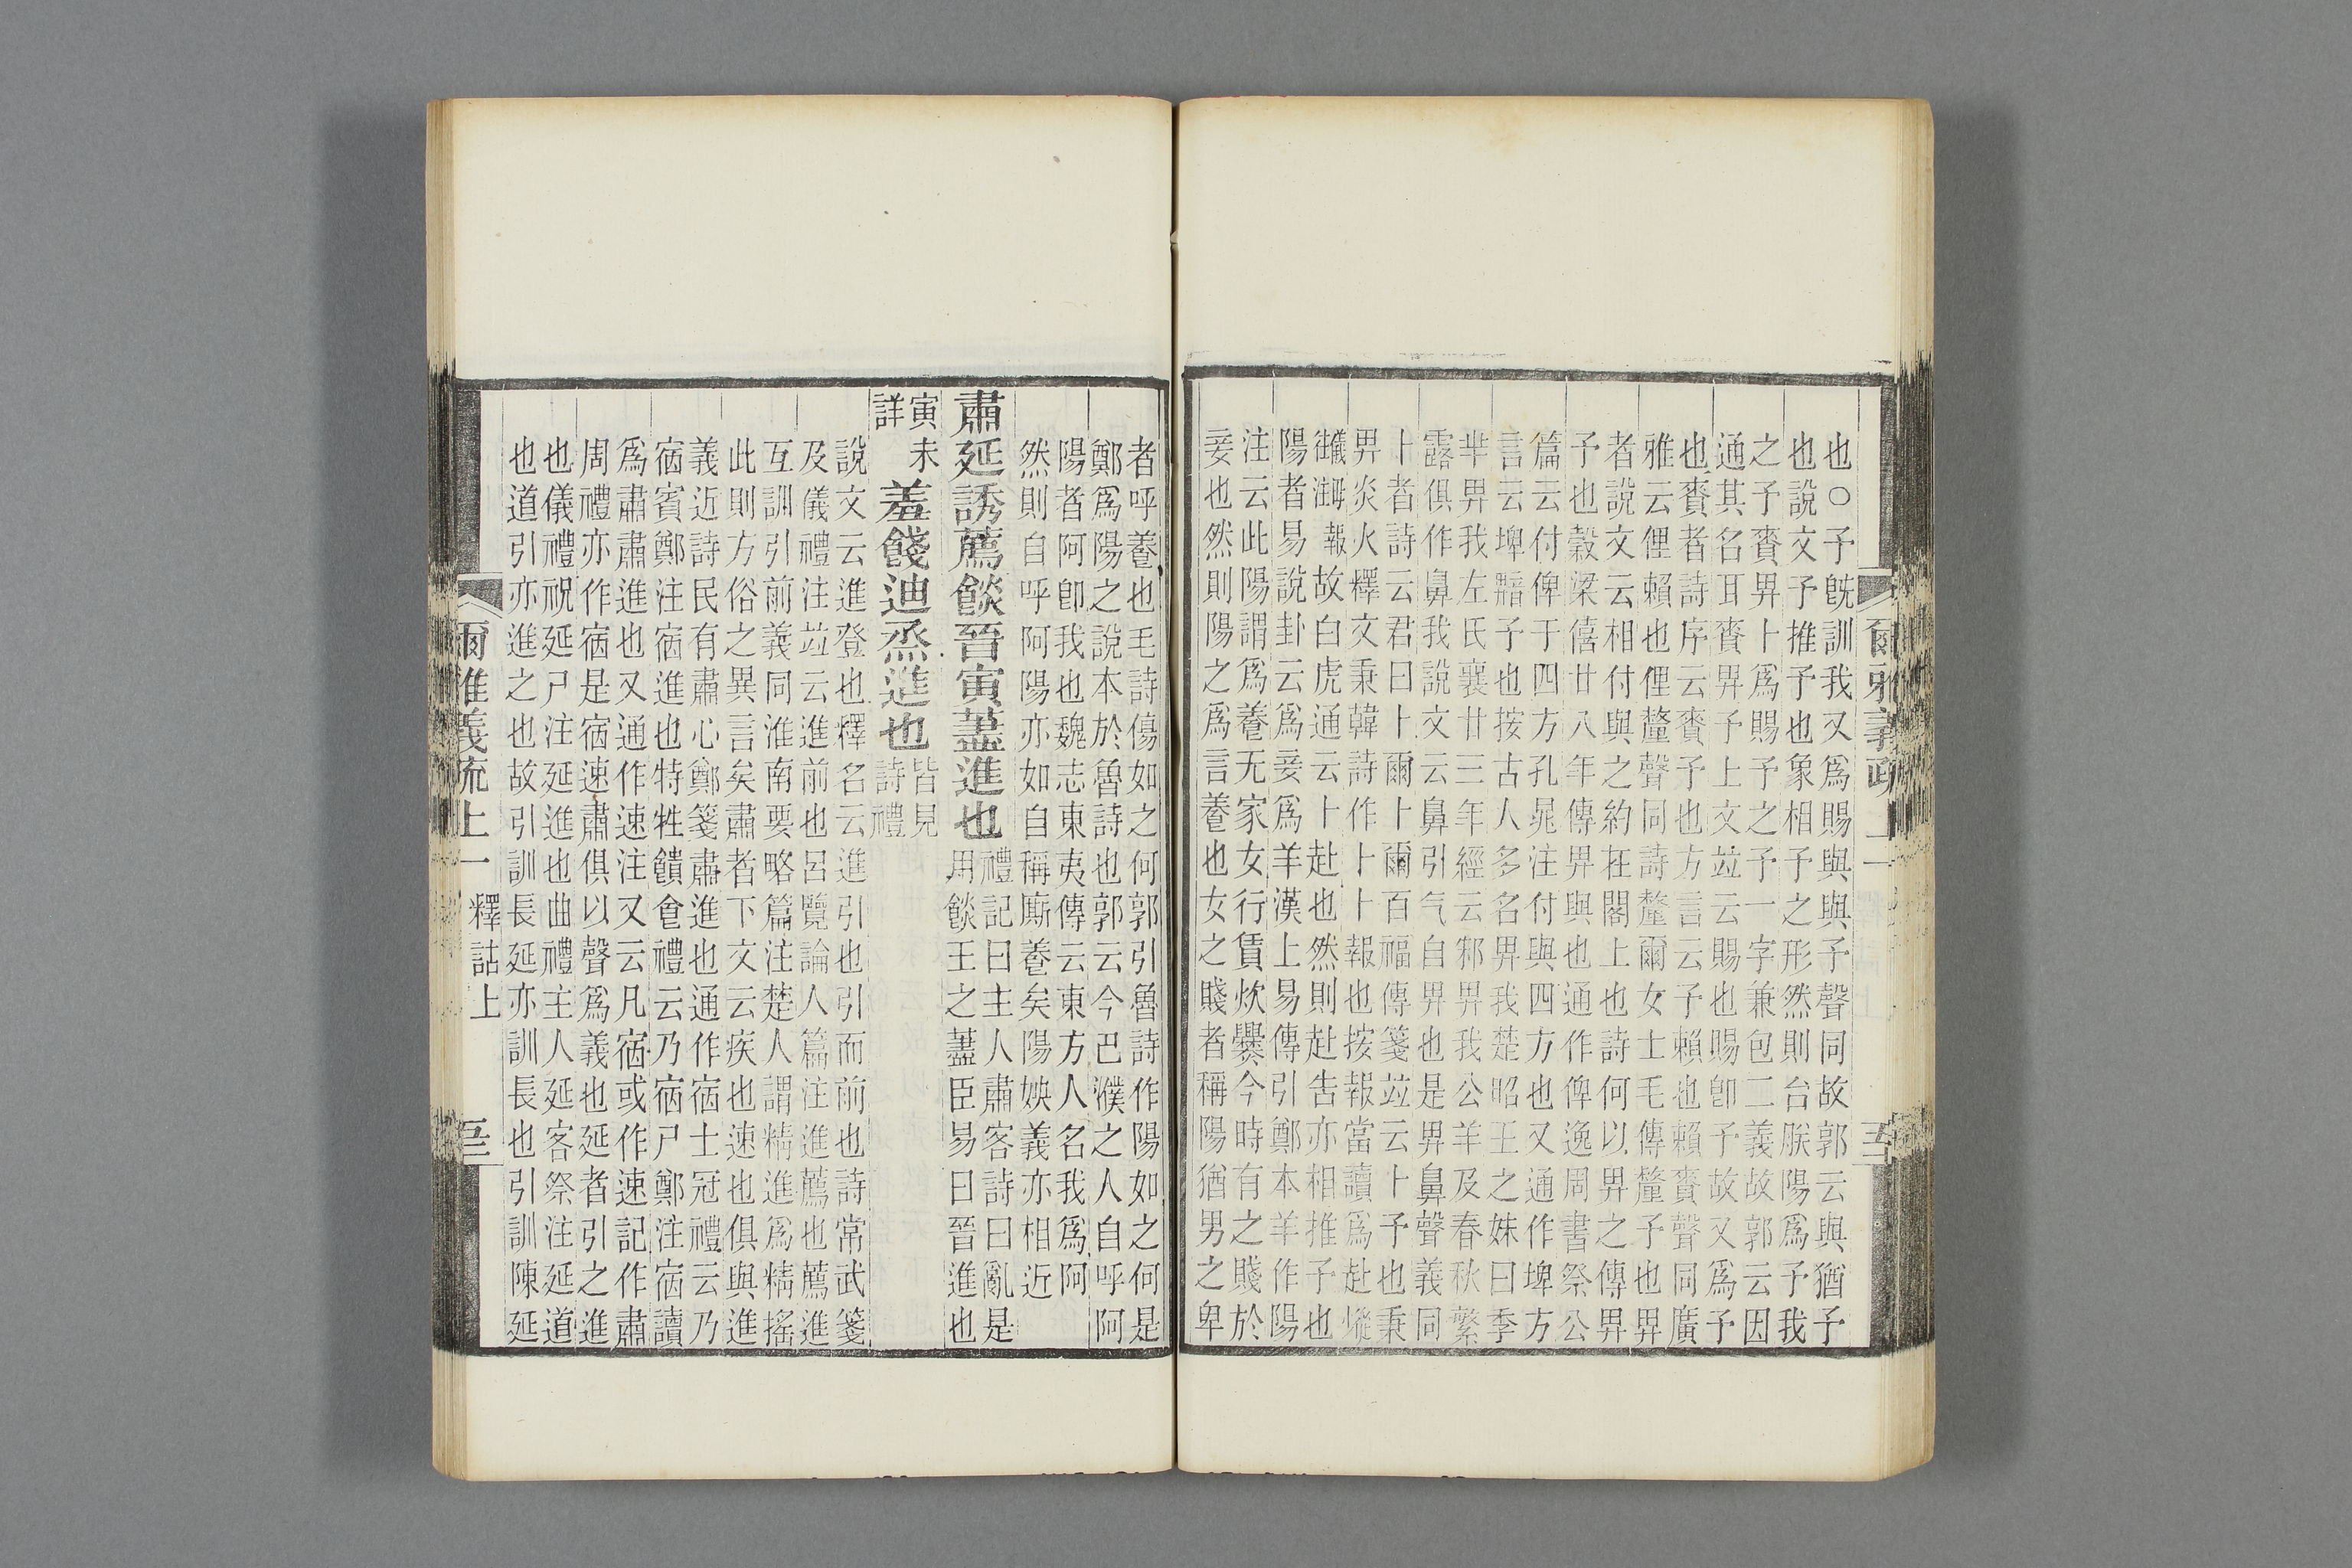 也○予旣訓我又爲賜與與予聲同故郭云與猶予
也說文予推予也象相予之形然則台朕陽爲予我
之予賚畀卜爲賜予之予一字兼包二義故郭云因
通其名耳賚畀予上文竝云賜也賜卽予故又爲予
也賚者詩序云賚予也方言云予賴也賴賚聲同廣
雅云俚賴也俚釐聲同詩釐爾女士毛傳釐予也畀
者說文云相付與之約在閣上也詩何以畀之傳畀
予也穀梁僖廿八年傳畀與也通作俾逸周書祭公
篇云付俾于四方孔晁注付與四方也又通作埤方
言云埤黯予也按古人多名畀我楚昭王之妹曰季
芈畀我左氏襄廿三年經云邾畀我公羊及春秋繁
露俱作鼻我說文云鼻引气自畀也是畀鼻聲義同
卜者詩云君曰卜爾卜爾百福傳箋竝云卜予也秉
畀炎火釋文秉韓詩作卜卜報也按報當讀爲赴
報故白虎通云卜赴也然則赴告亦相推予也
陽者易說卦云爲妾爲羊漢上易傳引鄭本羊作陽
注云此陽謂爲養无家女行賃炊爨今時有之賤於
妾也然則陽之爲言養也女之賤者稱陽猶男之卑
爾雅義疏上一
者呼養也毛詩傷如之何郭引魯詩作陽如之何是
鄭爲陽之說本於魯詩也郭云今巴濮之人自呼阿
陽者阿卽我也魏志東夷傳云東方人名我爲阿
然則自呼阿陽亦如自稱廝養矣陽姎義亦相近
肅延誘薦餤晉寅藎進也
禮記曰主人肅客詩曰亂是
用餤王之藎臣易曰晉進也
寅未
詳
羞餞迪烝進也
皆見
詩禮
說文云進登也釋名云進引也引而前也詩常武箋
及儀禮注竝云進前也呂覽論人篇注進薦也薦進
互訓引前義同淮南要略篇注楚人謂精進爲精搖
此則方俗之異言矣肅者下文云疾也速也俱與進
義近詩民有肅心鄭箋肅進也通作宿士冠禮云乃
宿賓鄭注宿進也特牲饋食禮云乃宿尸鄭注宿讀
爲肅肅進也又通作速注又云凡宿或作速記作肅
周禮亦作宿是宿速肅俱以聲爲義也延者引之進
也儀禮祝延尸注延進也曲禮主人延客祭注延道
也道引亦進之也故引訓長延亦訓長也引訓陳延
爾雅義疏上一　釋詁上